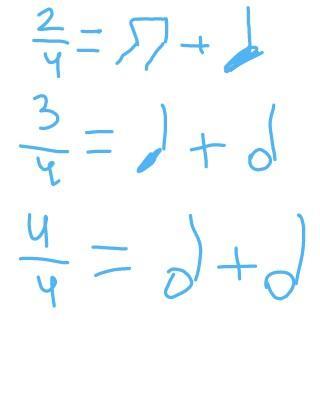 2/4 = ♫ + ♩
3/4 = ♩ + 𝅗𝅥
4/4 = 𝅗𝅥 + 𝅗𝅥